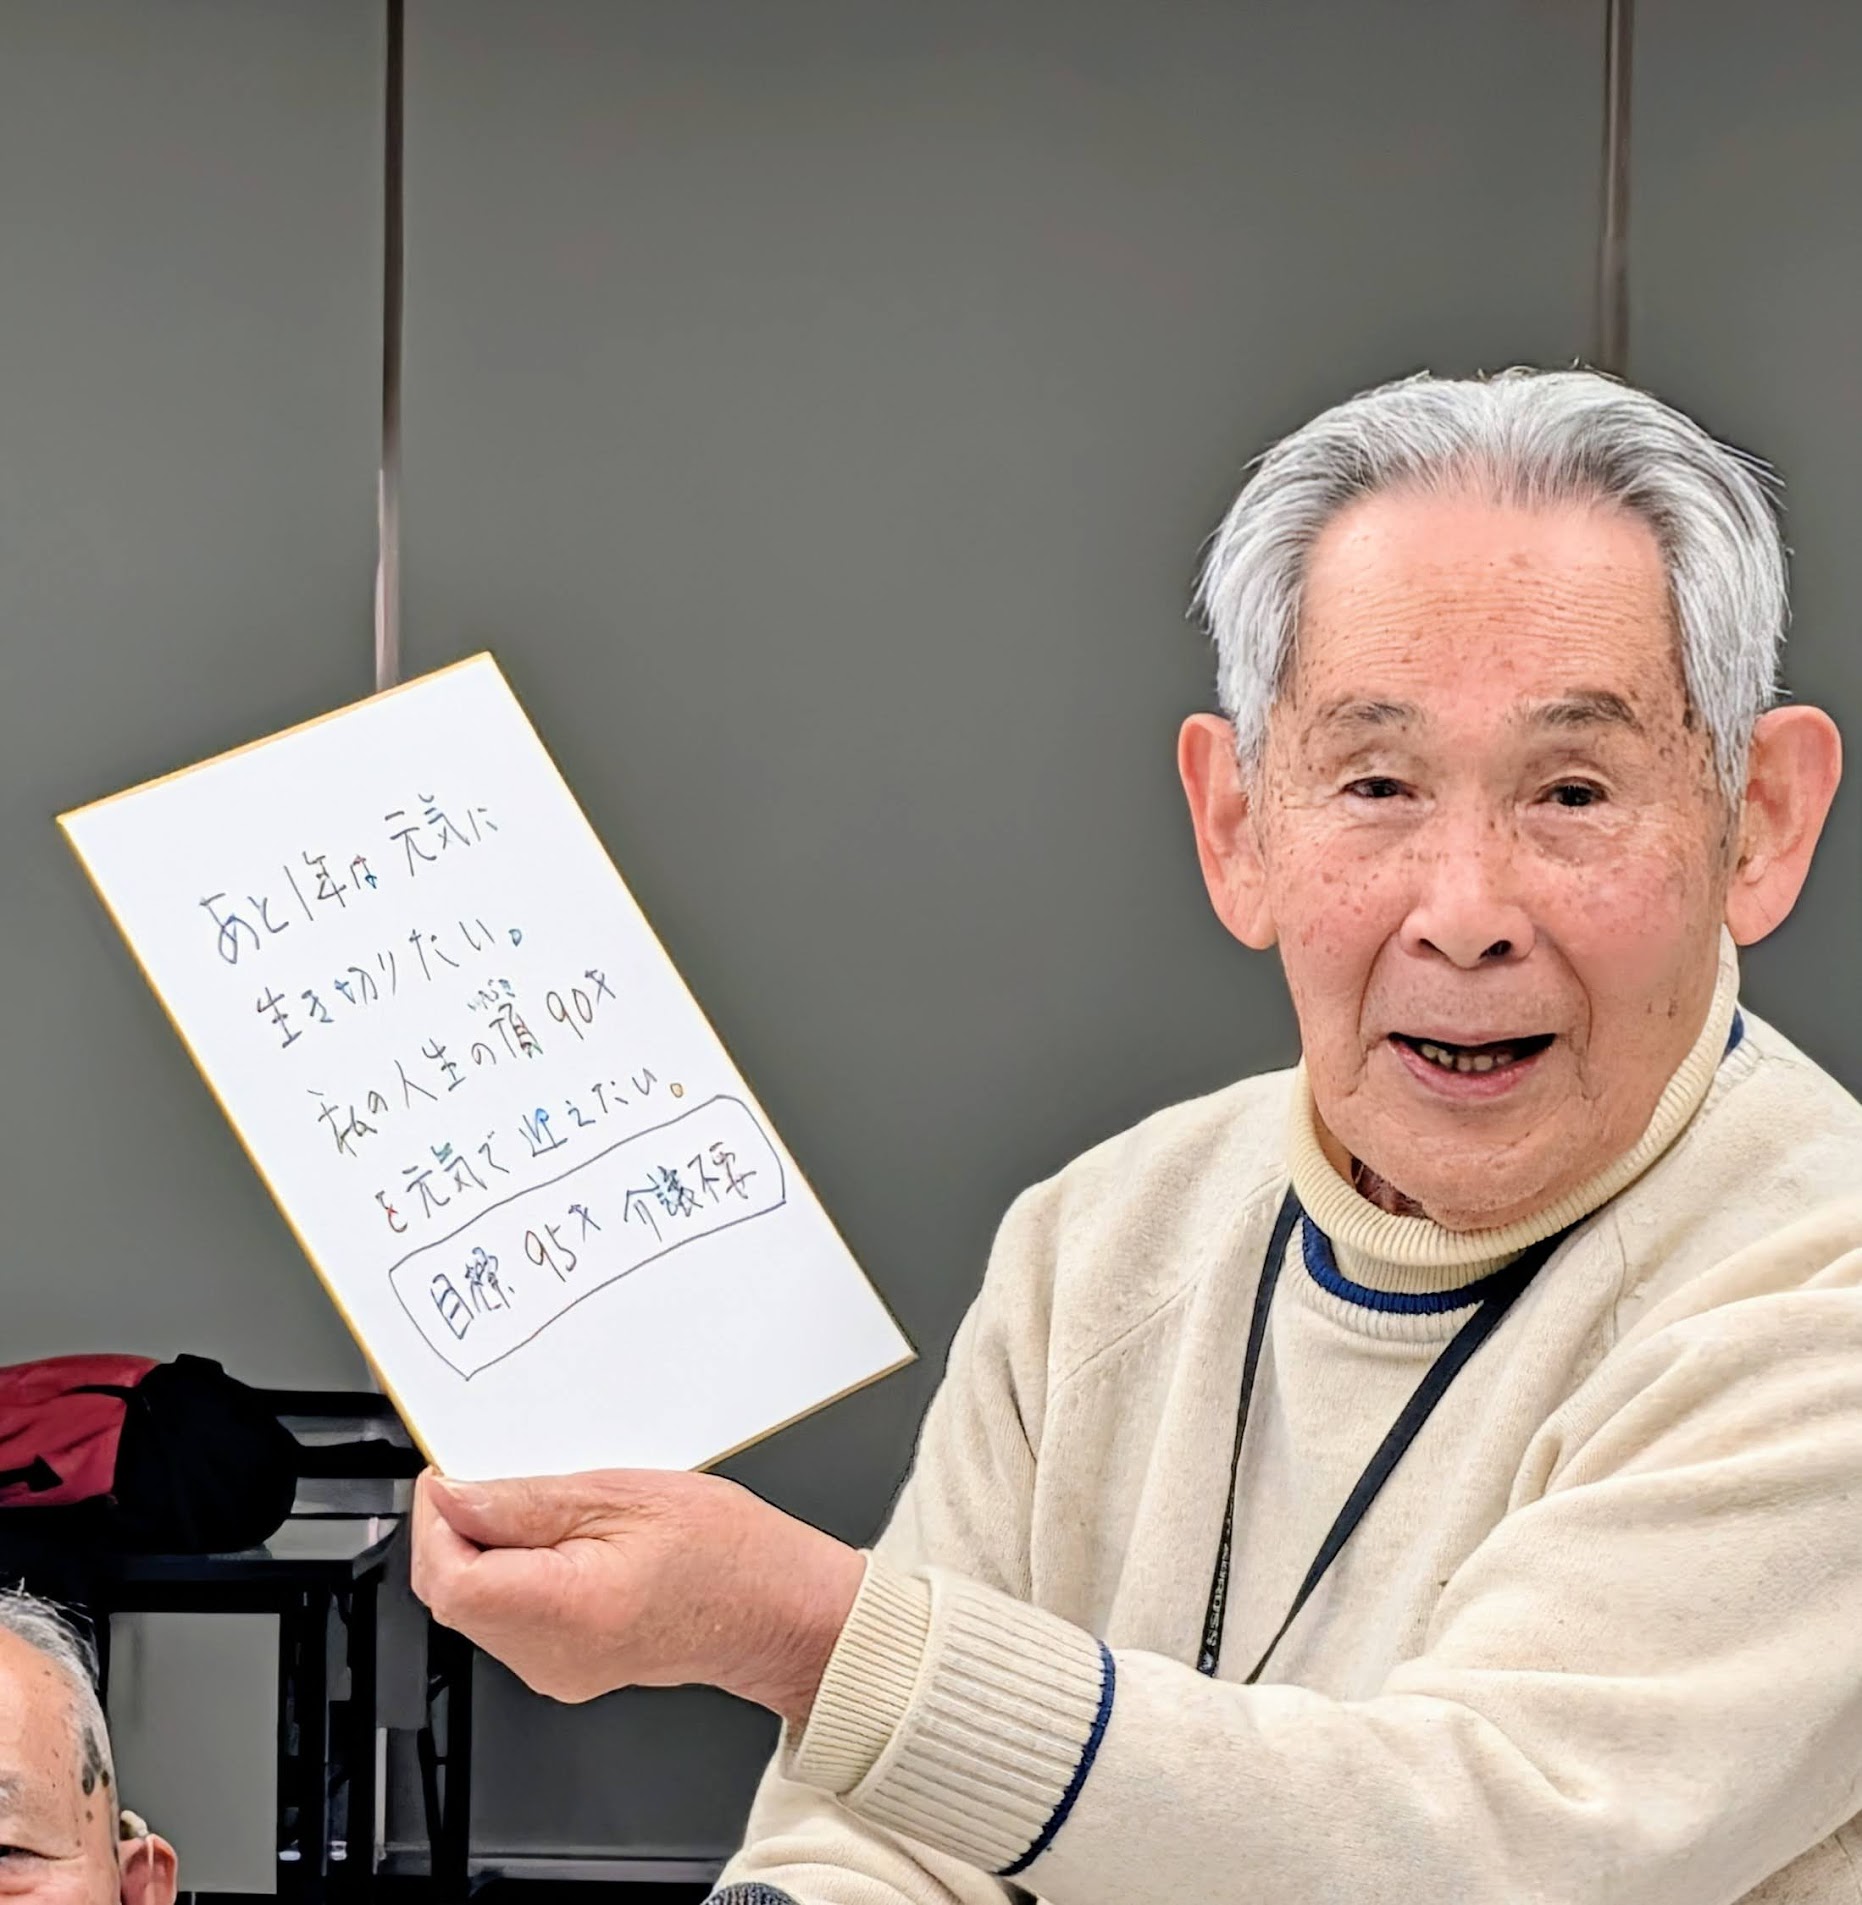 あと1年は元気に
生き切りたい。
私の人生の頂 90才
を元気で迎えたい。
目標 95才 介護不要